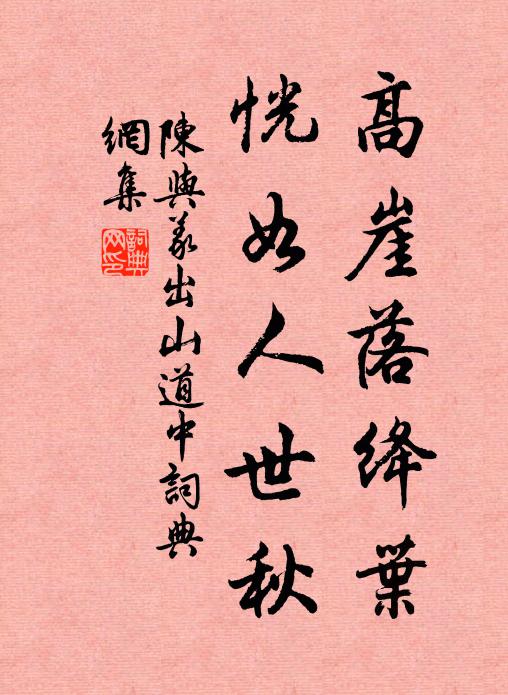 高崖落絳葉
恍如人世秋
陳與義出山道中詞典
網集
詞典網印